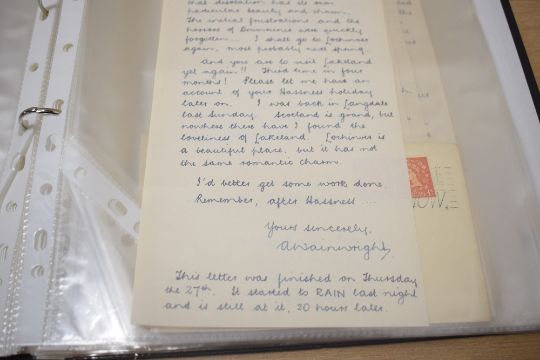 that desolation has its own
particular beauty and charm.
The initial frustrations and the
horrors of Inverness were quickly
forgotten... I shall go to Lochinver
again, most probably next spring.
And you are to visit Lakeland
yet again!! Third time in four
months! Please let me have an
account of your Hassness holiday
later on. I was back in Langdale
last Sunday. Scotland is grand, but
nowhere there have I found the
loveliness of Lakeland. Lochinver is
a beautiful place, but it has not
the same romantic charm.
I'd better get some work done.
Remember, after Hassness ....
Yours sincerely,
AWainwright,
This letter was finished on Thursday
the 27th. It started to RAIN last night
and is still at it, 20 hours later.